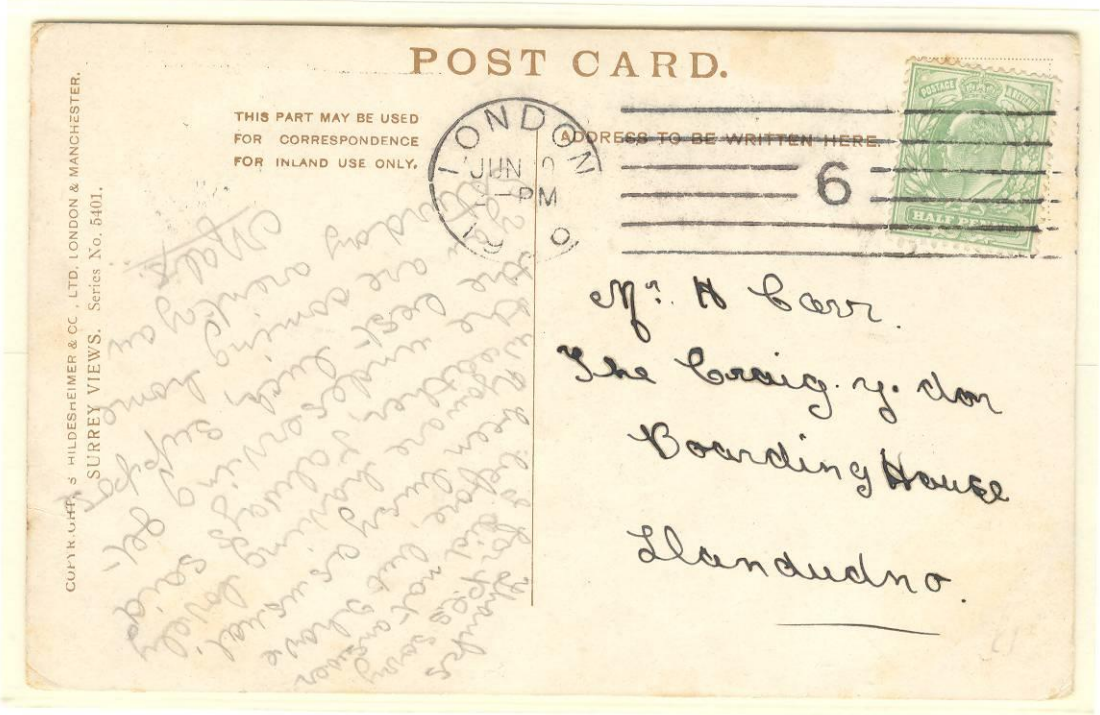 POST CARD.
THIS PART MAY BE USED
FOR CORRESPONDENCE
FOR INLAND USE ONLY.
ADDRESS TO BE WRITTEN HERE.
LONDON
JUN
PM
6
POSTAGE
HALF PENNY
COPYRIGHT, S HILDESHEIMER & CO., LTD. LONDON & MANCHESTER.
SURREY VIEWS. Series No. 5401.
Mr. H Carr.
The Craig-y-don
Boarding House
Llandudno.
Thanks
for sorry
did not answer
before, but I have
been busy as usual
are having lovely
weather, always get
the undeserving said
the best luck,
are coming home
day arent you